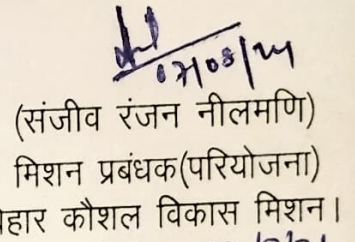 07/08/24
(संजीव रंजन नीलमणि)
मिशन प्रबंधक(परियोजना)
हार कौशल विकास मिशन।